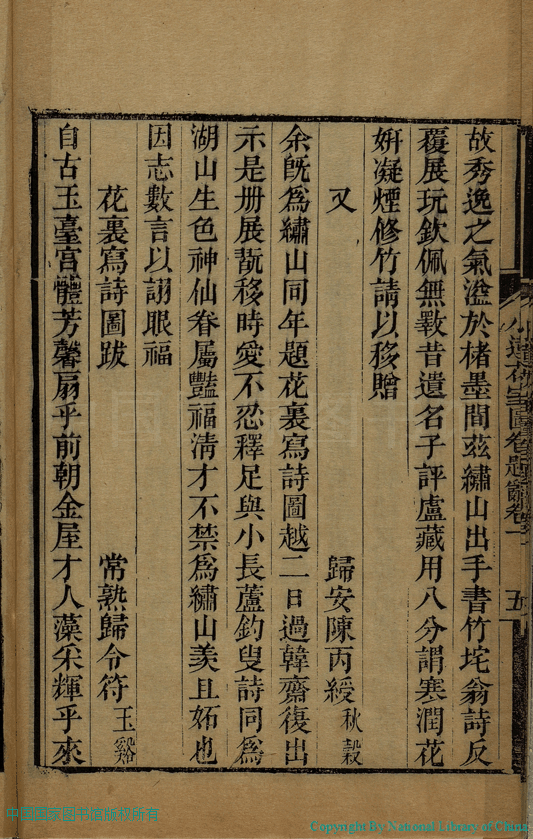 故秀逸之氣溢於楮墨間茲繡山出手書竹垞翁詩反
覆展玩欽佩無斁昔遺名子評盧藏用八分謂寒潤花
妍凝煙修竹請以移贈
又 歸安陳丙綬秋穀
余旣爲繡山同年題花裏寫詩圖越二日過韓齋復出
示是册展翫移時愛不忍釋足與小長蘆釣叟詩同爲
湖山生色神仙眷屬豔福淸才不禁爲繡山羨且妬也
因志數言以詡眼福
花裏寫詩圖跋 常熟歸令符玉谿
自古玉臺宮體芳馨扇乎前朝金屋才人藻采輝乎來
五
中国国家图书馆版权所有
Copyright By National Library of China